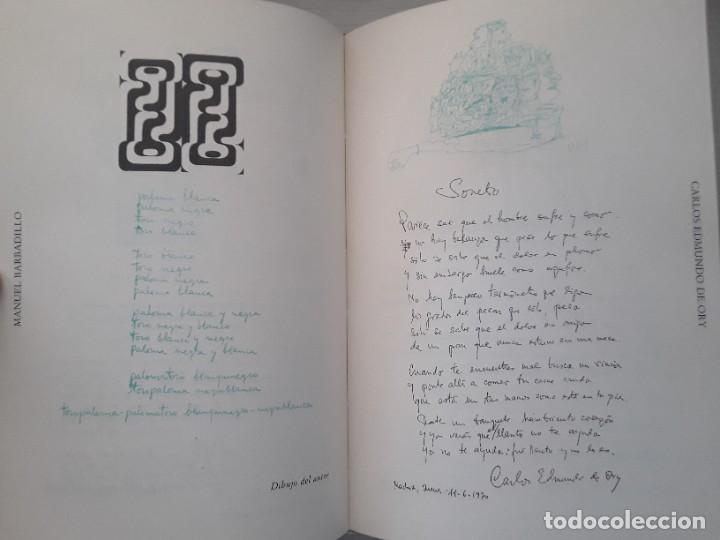 MANUEL BARBADILLO
paloma blanca
paloma negra
toro negro
toro blanco
toro blanco
toro negro
paloma negra
paloma blanca
paloma blanca y negra
toro negro y blanco
toro blanco y negro
paloma negra y blanca
palomatoro blanquinegro
toripaloma negriblanca
toripaloma-palomatoro blanquinegro-negriblanca
Dibujo del autor
CARLOS EDMUNDO DE ORY
Soneto
Parece ser que el hombre sufre y
no hay balanza que pese lo que sufre
sólo se sabe que el dolor es plomo
y sin embargo huele como azufre
No hay termómetro que
los grados de pesar que sólo, pesa
sólo se sabe que el dolor es
de un pan que nunca estuvo en una mesa
Cuando te encuentres mal busca un rincón
y ponte allí a comer tu carne cruda
que está en tus manos como está en tu pie
Date un banquete hambriento corazón
y ya verás que el llanto no te ayuda
ya no te ayuda: fue llanto y no lo es.
Carlos Edmundo de Ory
Madrid, 11-6-1970
todocoleccion
todocoleccion.net